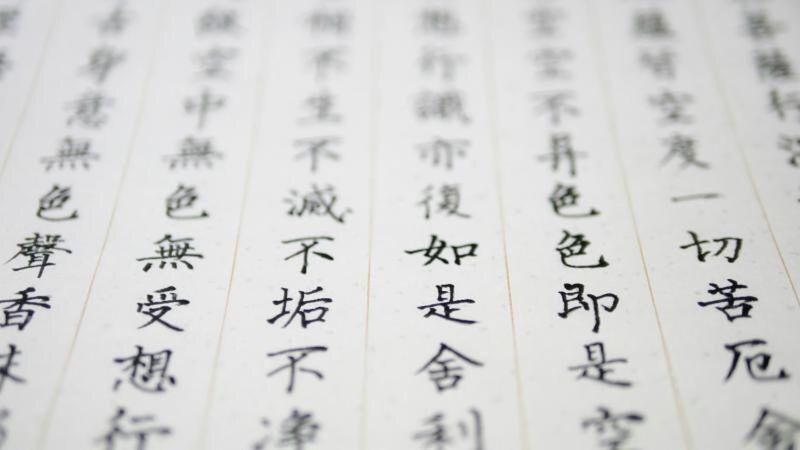 菩薩行
蘊皆空度一切苦厄舍
空空不異色色即是空
想行識亦復如是舍利
相不生不滅不垢不淨
故空中無色無受想行
舌身意無色聲香味